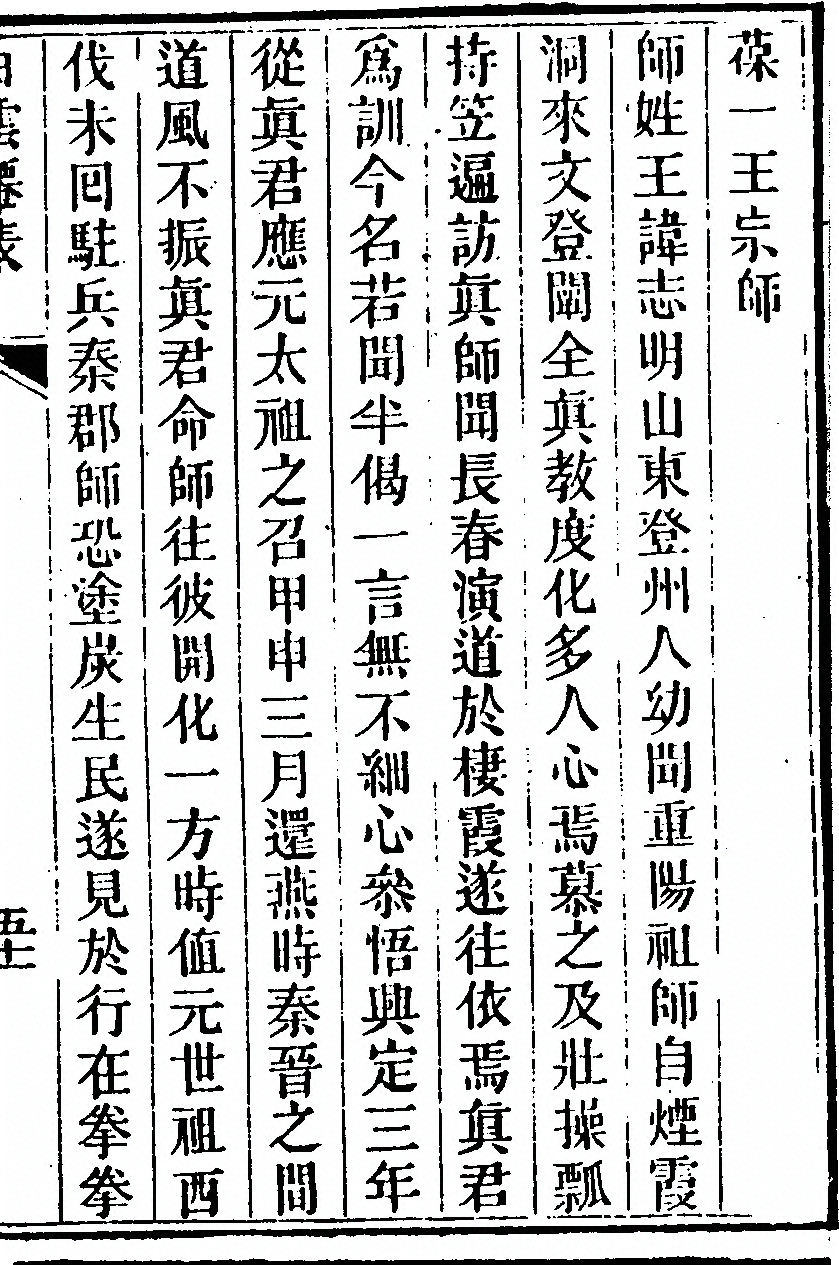 葆一王宗師
師姓王諱志明山東登州人幼聞重陽祖師自煙霞
洞來文登闡全眞教度化多人心焉慕之及壯操瓢
持笠遍訪眞師聞長春演道於棲霞遂往依焉眞君
爲訓今名若聞半偈一言無不細心叅悟興定三年
從眞君應元太祖之召甲申三月還燕時秦晉之間
道風不振眞君命師往彼開化一方時值元世祖西
伐未囘駐兵秦郡師恐塗炭生民遂見於行在拳拳
白雲僊表
五十一